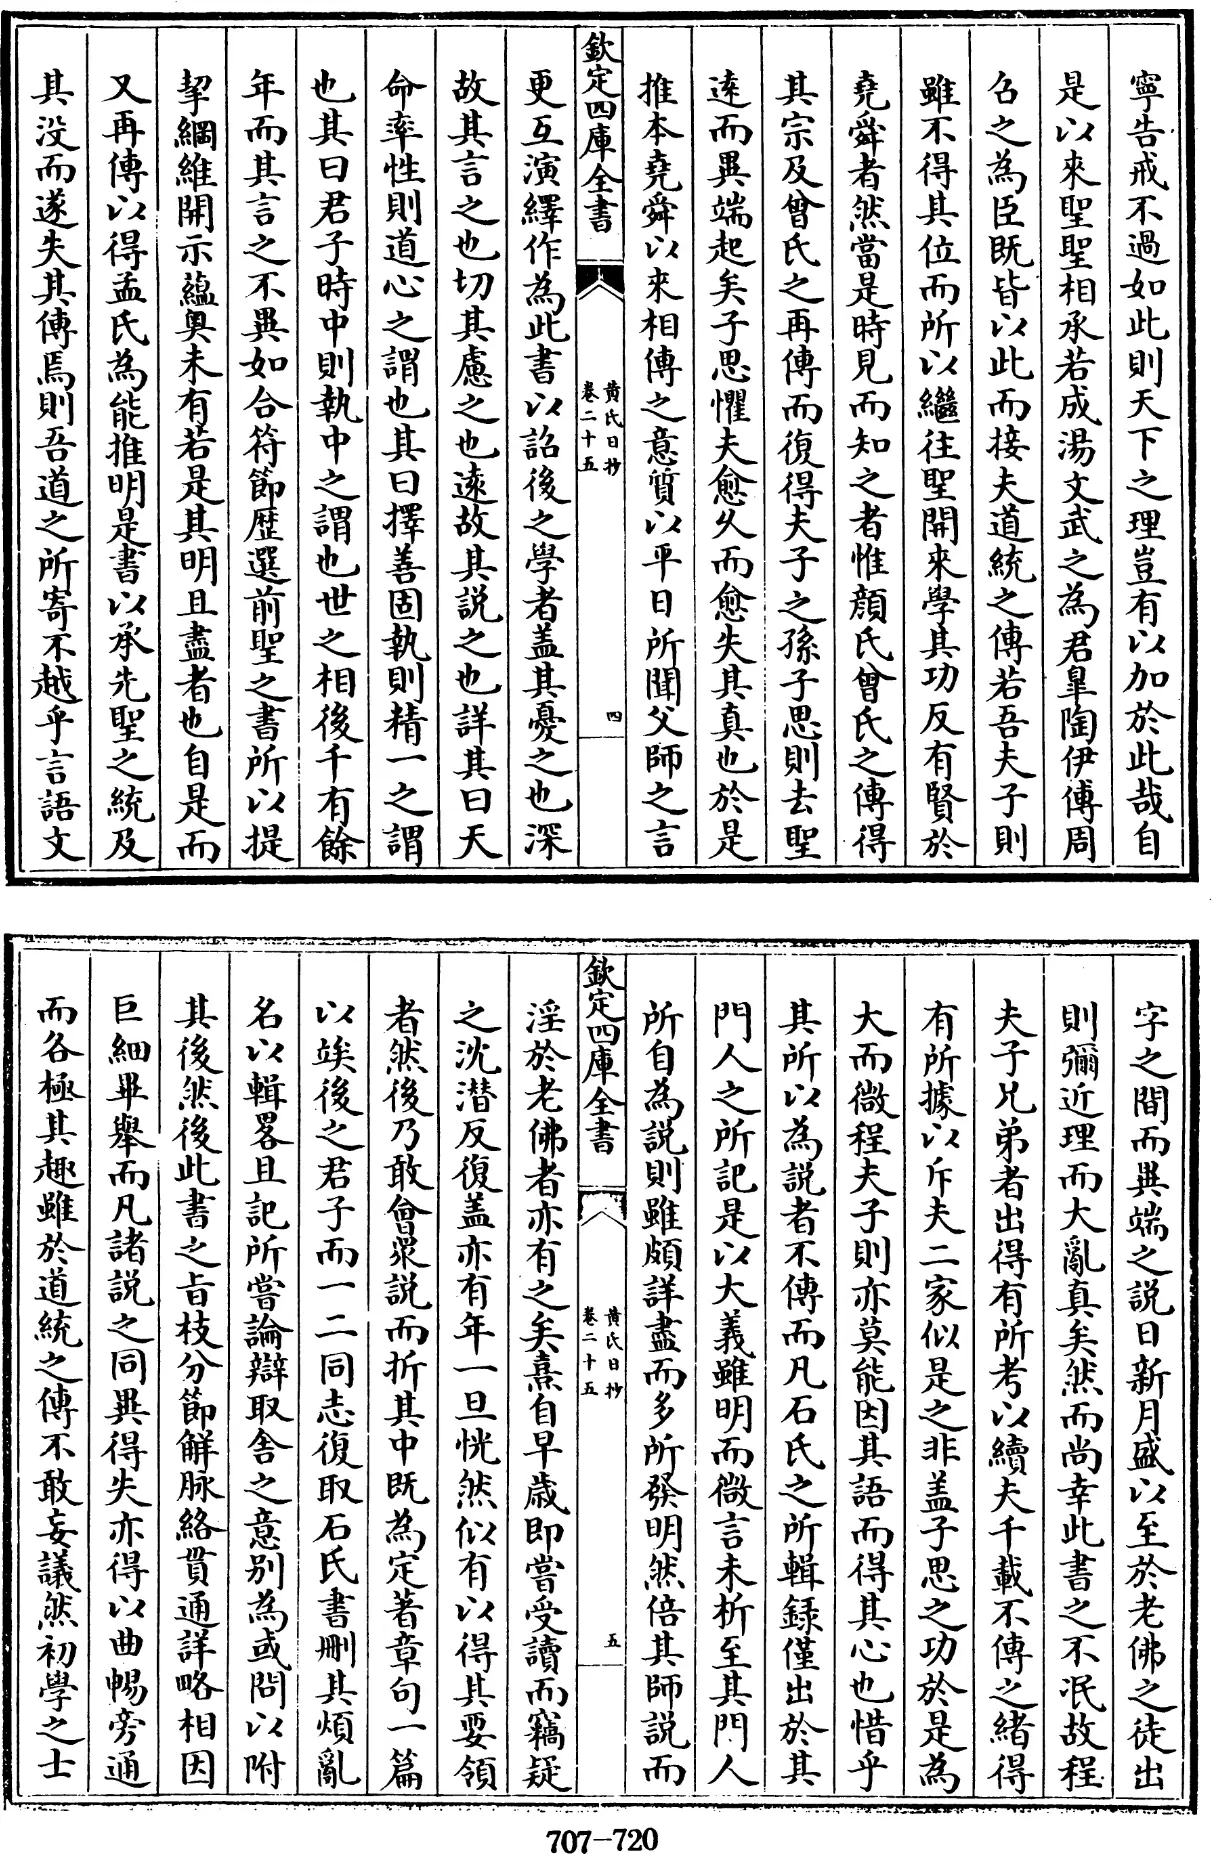 寧告戒不過如此則天下之理豈有以加於此哉自
是以來聖聖相承若成湯文武之為君臯陶伊傅周
召之為臣既皆以此而接夫道統之傳若吾夫子則
雖不得其位而所以繼往聖開來學其功反有賢於
堯舜者然當是時見而知之者惟顔氏曾氏之傳得
其宗及曾氏之再傳而復得夫子之孫子思則去聖
逺而異端起矣子思懼夫愈乆而愈失其真也於是
推本堯舜以來相傳之意質以平日所聞父師之言
欽定四庫全書
黄氏日抄
卷二十五
四
更互演繹作為此書以詔後之學者盖其憂之也深
故其言之也切其慮之也逺故其説之也詳其曰天
命率性則道心之謂也其曰擇善固執則精一之謂
也其曰君子時中則執中之謂也世之相後千有餘
年而其言之不異如合符節歴選前聖之書所以提
挈綱維開示藴奥未有若是其明且盡者也自是而
又再傳以得孟氏為能推明是書以承先聖之統及
其没而遂失其傳焉則吾道之所寄不越乎言語文
字之間而異端之説日新月盛以至於老佛之徒出
則彌近理而大亂真矣然而尚幸此書之不泯故程
夫子兄弟者出得有所考以續夫千載不傳之緒得
有所據以斥夫二家似是之非盖子思之功於是為
大而微程夫子則亦莫能因其語而得其心也惜乎
其所以為説者不傳而凡石氏之所輯録僅出於其
門人之所記是以大義雖明而微言未析至其門人
所自為説則雖頗詳盡而多所發明然倍其師説而
欽定四庫全書
黄氏日抄
卷二十五
五
淫於老佛者亦有之矣熹自早歳即嘗受讀而竊疑
之沈潜反復盖亦有年一旦恍然似有以得其要領
者然後乃敢會衆説而折其中既為定著章句一篇
以竢後之君子而一二同志復取石氏書刪其煩亂
名以輯畧且記所嘗論辯取舍之意别為或問以附
其後然後此書之旨枝分節解脉絡貫通詳略相因
巨細畢舉而凡諸説之同異得失亦得以曲暢旁通
而各極其趣雖於道統之傳不敢妄議然初學之士
707-720